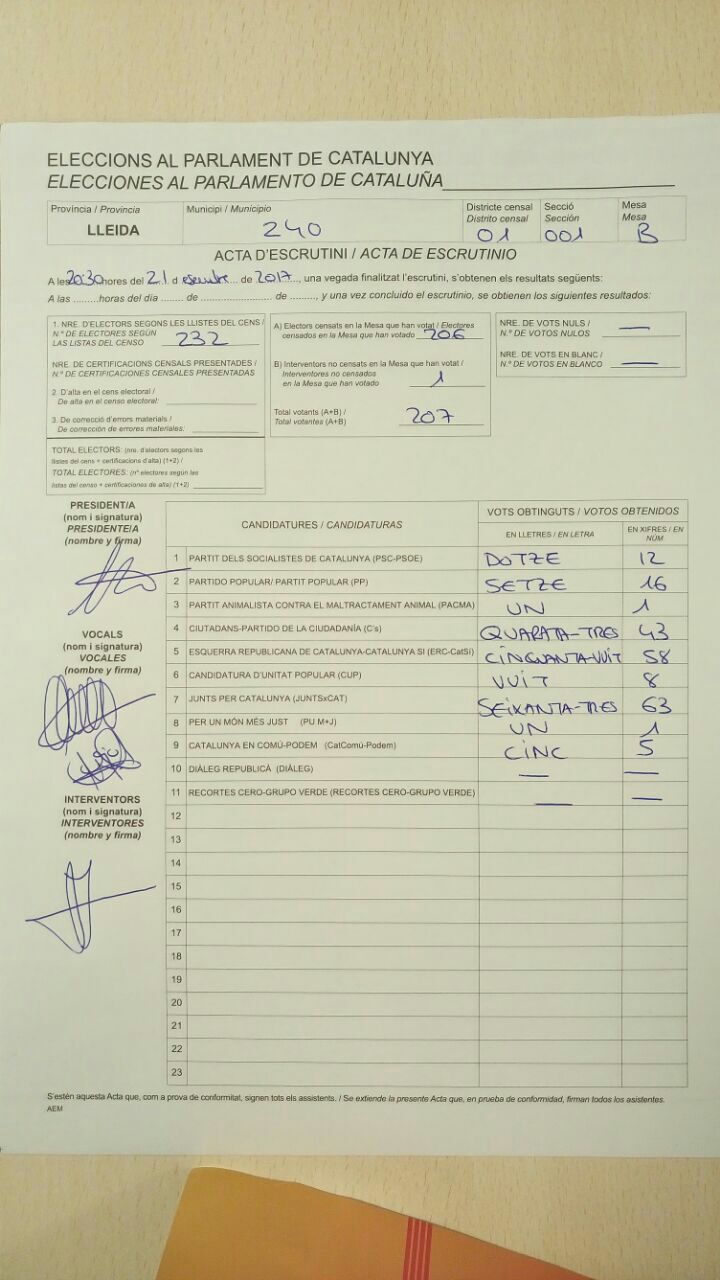 ELECCIONS AL PARLAMENT DE CATALUNYA
ELECCIONES AL PARLAMENTO DE CATALUÑA
Província / Provincia Municipi / Municipio Districte censal Secció Mesa
Distrito censal Sección Mesa
LLEIDA 240 01 001 B
ACTA D'ESCRUTINI / ACTA DE ESCRUTINIO
A les 20:30 hores del 21 d esembre de 2017, una vegada finalitzat l'escrutini, s'obtenen els resultats següents:
A las .........horas del día ....... de ...................... de ........., y una vez concluido el escrutinio, se obtienen los siguientes resultados:
1. NRE. D'ELECTORS SEGONS LES LLISTES DEL CENS /
N.º DE ELECTORES SEGÚN
LAS LISTAS DEL CENSO 232
NRE. DE CERTIFICACIONS CENSALS PRESENTADES /
N.º DE CERTIFICACIONES CENSALES PRESENTADAS
2. D'alta en el cens electoral /
De alta en el censo electoral:
3. De correcció d'errors materials /
De corrección de errores materiales:
TOTAL ELECTORS: (nre. d'electors segons les
llistes del cens + certificacions d'alta) (1+2) /
TOTAL ELECTORES: (nº electores según las
listas del censo + certificaciones de alta) (1+2)
A) Electors censats en la Mesa que han votat / Electores
censados en la Mesa que han votado 206
B) Interventors no censats en la Mesa que han votat /
Interventores no censados
en la Mesa que han votado 1
Total votants (A+B) /
Total votantes (A+B) 207
NRE. DE VOTS NULS /
N.º DE VOTOS NULOS —
NRE. DE VOTS EN BLANC /
N.º DE VOTOS EN BLANCO —
PRESIDENT/A
(nom i signatura)
PRESIDENTE/A
(nombre y firma)
VOCALS
(nom i signatura)
VOCALES
(nombre y firma)
INTERVENTORS
(nom i signatura)
INTERVENTORES
(nombre y firma)
CANDIDATURES / CANDIDATURAS VOTS OBTINGUTS / VOTOS OBTENIDOS
EN LLETRES / EN LETRA EN XIFRES / EN NÚM
1 PARTIT DELS SOCIALISTES DE CATALUNYA (PSC-PSOE) DOTZE 12
2 PARTIDO POPULAR/ PARTIT POPULAR (PP) SETZE 16
3 PARTIT ANIMALISTA CONTRA EL MALTRACTAMENT ANIMAL (PACMA) UN 1
4 CIUTADANS-PARTIDO DE LA CIUDADANÍA (C's) QUARATA-TRES 43
5 ESQUERRA REPUBLICANA DE CATALUNYA-CATALUNYA SI (ERC-CatSí) CINQUANTA-VUIT 58
6 CANDIDATURA D'UNITAT POPULAR (CUP) VUIT 8
7 JUNTS PER CATALUNYA (JUNTSxCAT) SEIXANTA-TRES 63
8 PER UN MÓN MÉS JUST (PU M+J) UN 1
9 CATALUNYA EN COMÚ-PODEM (CatComú-Podem) CINC 5
10 DIÀLEG REPUBLICÀ (DIÀLEG) — —
11 RECORTES CERO-GRUPO VERDE (RECORTES CERO-GRUPO VERDE) — —
12
13
14
15
16
17
18
19
20
21
22
23
S'estén aquesta Acta que, com a prova de conformitat, signen tots els assistents. / Se extiende la presente Acta que, en prueba de conformidad, firman todos los asistentes.
AEM